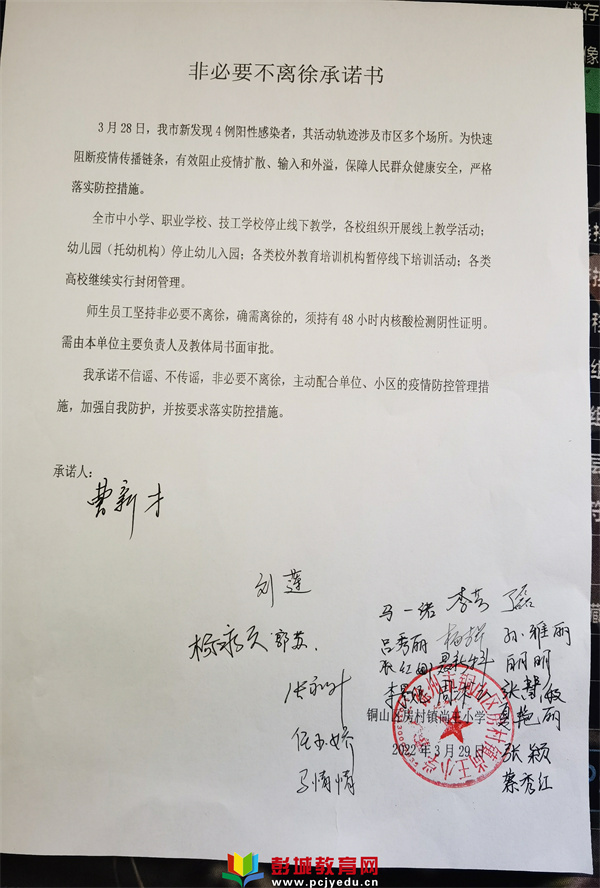 非必要不离徐承诺书
3月28日，我市新发现4例阳性感染者，其活动轨迹涉及市区多个场所。为快速
阻断疫情传播链条，有效阻止疫情扩散、输入和外溢，保障人民群众健康安全，严格
落实防控措施。
全市中小学、职业学校、技工学校停止线下教学，各校组织开展线上教学活动；
幼儿园（托幼机构）停止幼儿入园；各类校外教育培训机构暂停线下培训活动；各类
高校继续实行封闭管理。
师生员工坚持非必要不离徐，确需离徐的，须持有48小时内核酸检测阴性证明。
需由本单位主要负责人及教体局书面审批。
我承诺不信谣、不传谣，非必要不离徐，主动配合单位、小区的疫情防控管理措
施，加强自我防护，并按要求落实防控措施。
承诺人：
曹新才
刘莲
马一诺 李芸
杨永久 郭苏
吕秀丽 孙雅丽
张慧敏
铜山区房村镇尚王小学
夏艳丽
2022年3月29日
张颖
马倩倩
蔡秀红
彭城教育网
www.pcjyedu.cn